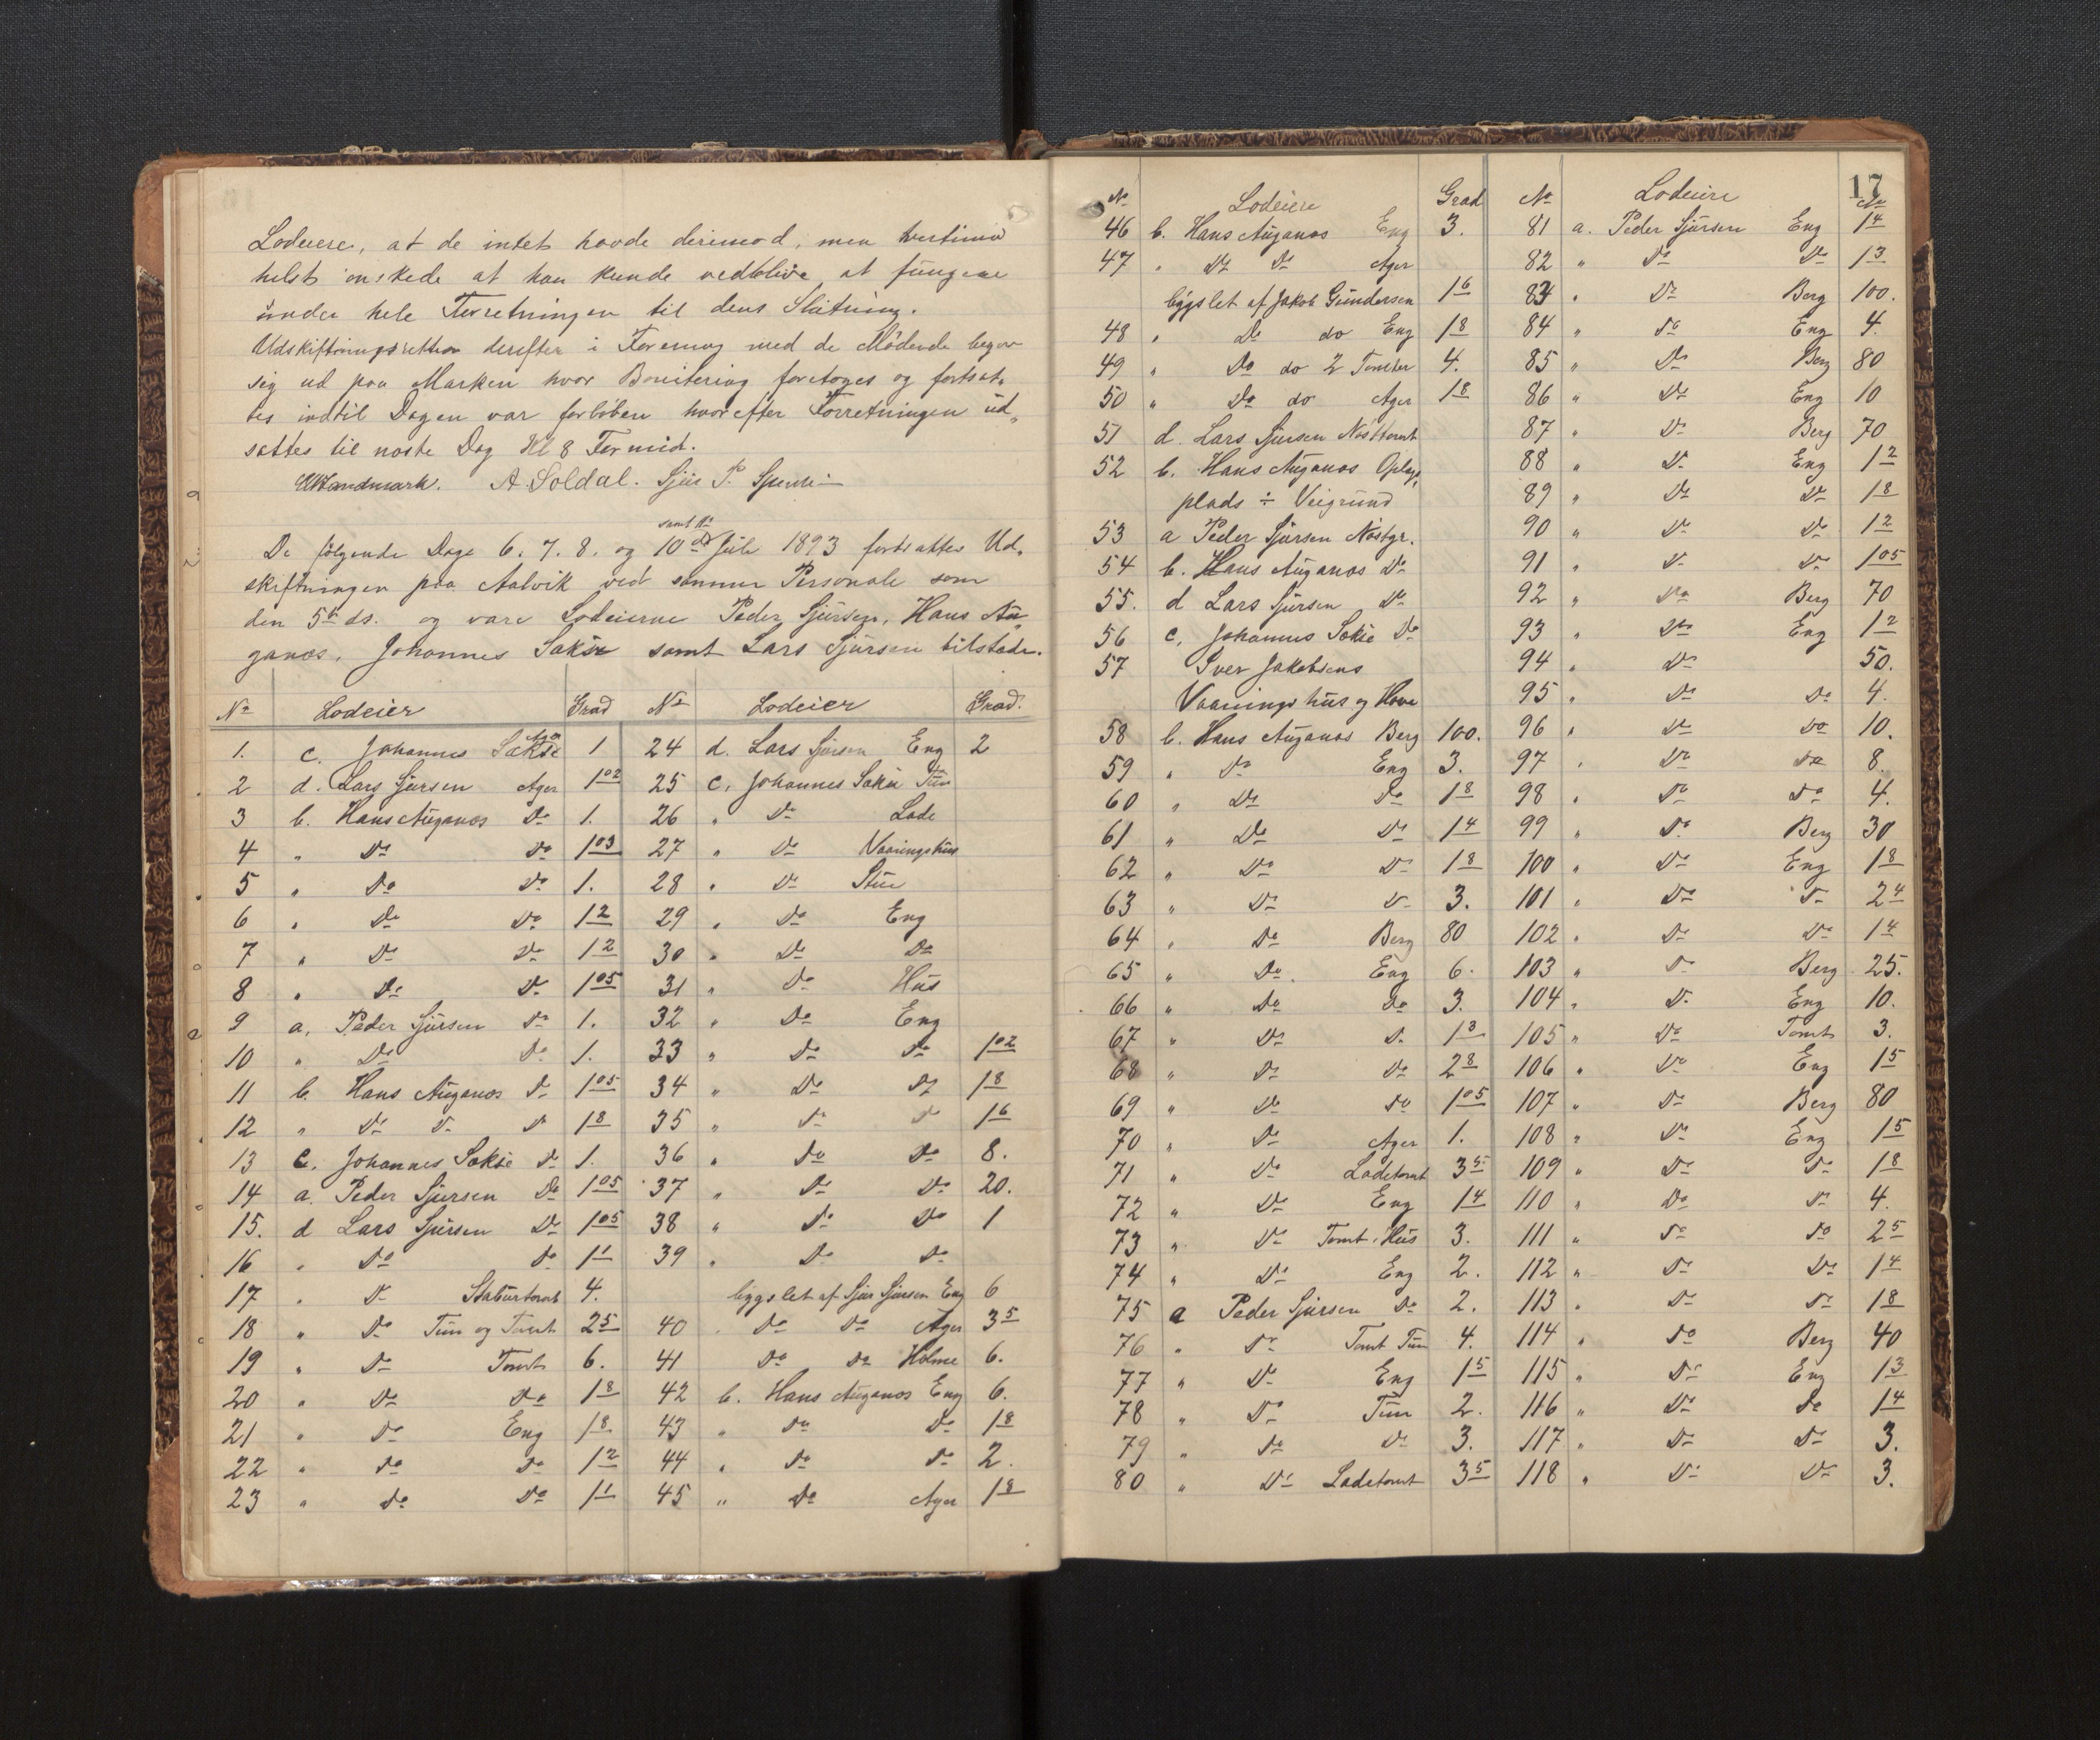 Lodeiere, at de intet havde derimod, men tvertimod
helst ønskede at han kunde vedblive at fungere
under hele Forretningen til dens Slutning.
Udskiftningsretten derefter i Forening med de Mødende begav
sig ud paa Marken hvor Bonitering foretoges og fortsat-
tes indtil Dagen var forløben hvorefter Forretningen ud-
sattes til næste Dag Kl 8 Formid.
A. Soldal. Sjur P.
samt 11te
De følgende Dage 6. 7. 8. og 10de Juli 1893 fortsattes Ud-
skiftningen paa Aalvik ved samme Personale som
den 5te ds. og vare Lodeierne Peder Sjursen, Hans Au-
ganæs, Johannes Sakse samt Lars Sjursen tilstede.
No Lodeier Grad No Lodeier Grad.
1. c. Johannes Sakse Ager 1 24 d. Lars Sjursen Eng 2
2 d. Lars Sjursen Ager 1 02 25 c. Johannes Sakse Tun
3 b. Hans Auganæs Do 1. 26 " Do Lade
4 " Do Do 1 03 27 " Do Vaaningshus
5 " Do Do 1. 28 " Do Stue
6 " Do Do 1 2 29 " Do Eng
7 " Do Do 1 2 30 " Do Do
8 " Do Do 1 05 31 " Do Hus
9 a. Peder Sjursen Do 1. 32 " Do Eng
10 " Do Do 1. 33 " Do Do 1 02
11 b. Hans Auganæs Do 1 05 34 " Do Do 1 8
12 " Do Do Do 1 8 35 " Do Do 1 6
13 c. Johannes Sakse Do 1. 36 " Do Do 8.
14 a. Peder Sjursen Do 1 05 37 " Do Do 20.
15. d Lars Sjursen Do 1 05 38 " Do Do 1
16 " Do Do 1 1 39 " Do Do
17 " Do Staburtomt 4. bygslet af Sjur Sjursen Eng 6
18 " Do Tun og Tomt 2 5 40 " Do Do Ager 3 5
19 " Do Tomt 6. 41 Do Do Holme 6.
20 " Do Do 1 8 42 b. Hans Auganæs Eng 6.
21 " Do Eng 1 8 43 " Do Do 1 8
22 " Do Do 1 2 44 " Do Do 2.
23 " Do Do 1 1 45 " Do Ager 1 8
17
No Lodeiere Grad No Lodeiere
46 b. Hans Auganæs Eng 3. 81 a. Peder Sjursen Eng 1 4
47 " Do Do Ager 82 " Do Do 1 3
bygslet af Jakob Gundersen 1 6 83 " Do Berg 100.
48 " Do do Eng 1 8 84 " Do Eng 4.
49 " Do do 2 Tomter 4. 85 " Do Berg 80
50 " Do do Ager 1 8 86 " Do Eng 10
51 d. Lars Sjursen Nøsttomt 87 " Do Berg 70
52 b. Hans Auganæs Oplags- 88 " Do Eng 1 2
plads ÷ Veigrund 89 " Do Do 1 8
53 a Peder Sjursen Nøstgr. 90 " Do Do 1 2
54 b. Hans Auganæs Do 91 " Do Do 1 05
55. d Lars Sjursen Do 92 " Do Berg 70
56 c. Johannes Sakse Do 93 " Do Eng 1 2
57 Iver Jakobsens 94 " Do 50.
Vaaningshus og Have 95 " Do Do 4.
58 b. Hans Auganæs Berg 100. 96 " Do Do 10.
59 " Do Eng 3. 97 " Do Do 8.
60 " Do Do 1 8 98 " Do Do 4.
61 " Do Do 1 4 99 " Do Berg 30
62 " Do Do 1 8 100 " Do Eng 1 8
63 " Do Do 3. 101 " Do Do 2 4
64 " Do Berg 80 102 " Do Do 1 4
65 " Do. Eng 6. 103 " Do Berg 25.
66 " Do Do 3. 104 " Do Eng 10.
67 " Do Do 1 3 105 " Do Tomt 3.
68 " Do Do 2 8 106 " Do Eng 1 5
69 " Do Do 1 05 107 " Do Berg 80
70 " Do Ager 1. 108 " Do Eng 1 5
71 " Do Ladetomt 3 5 109 " Do Do 1 8
72 " Do Eng 1 4 110 " Do Do 4.
73 " Do Tomt. Hus 3. 111 " Do Do 2 5
74 " Do Eng 2. 112 " Do Do 1 4
75 a Peder Sjursen Do 2. 113 " Do Do 1 8
76 " Do Tomt Tun 4. 114 " Do Berg 40
77 " Do Eng 1 5 115 " Do Eng 1 3
78 " Do Tun 2. 116 " Do Do 1 4
79 " Do Do 3. 117 " Do Do 3.
80 " Do Ladetomt 3 5 118 " Do Do 3.